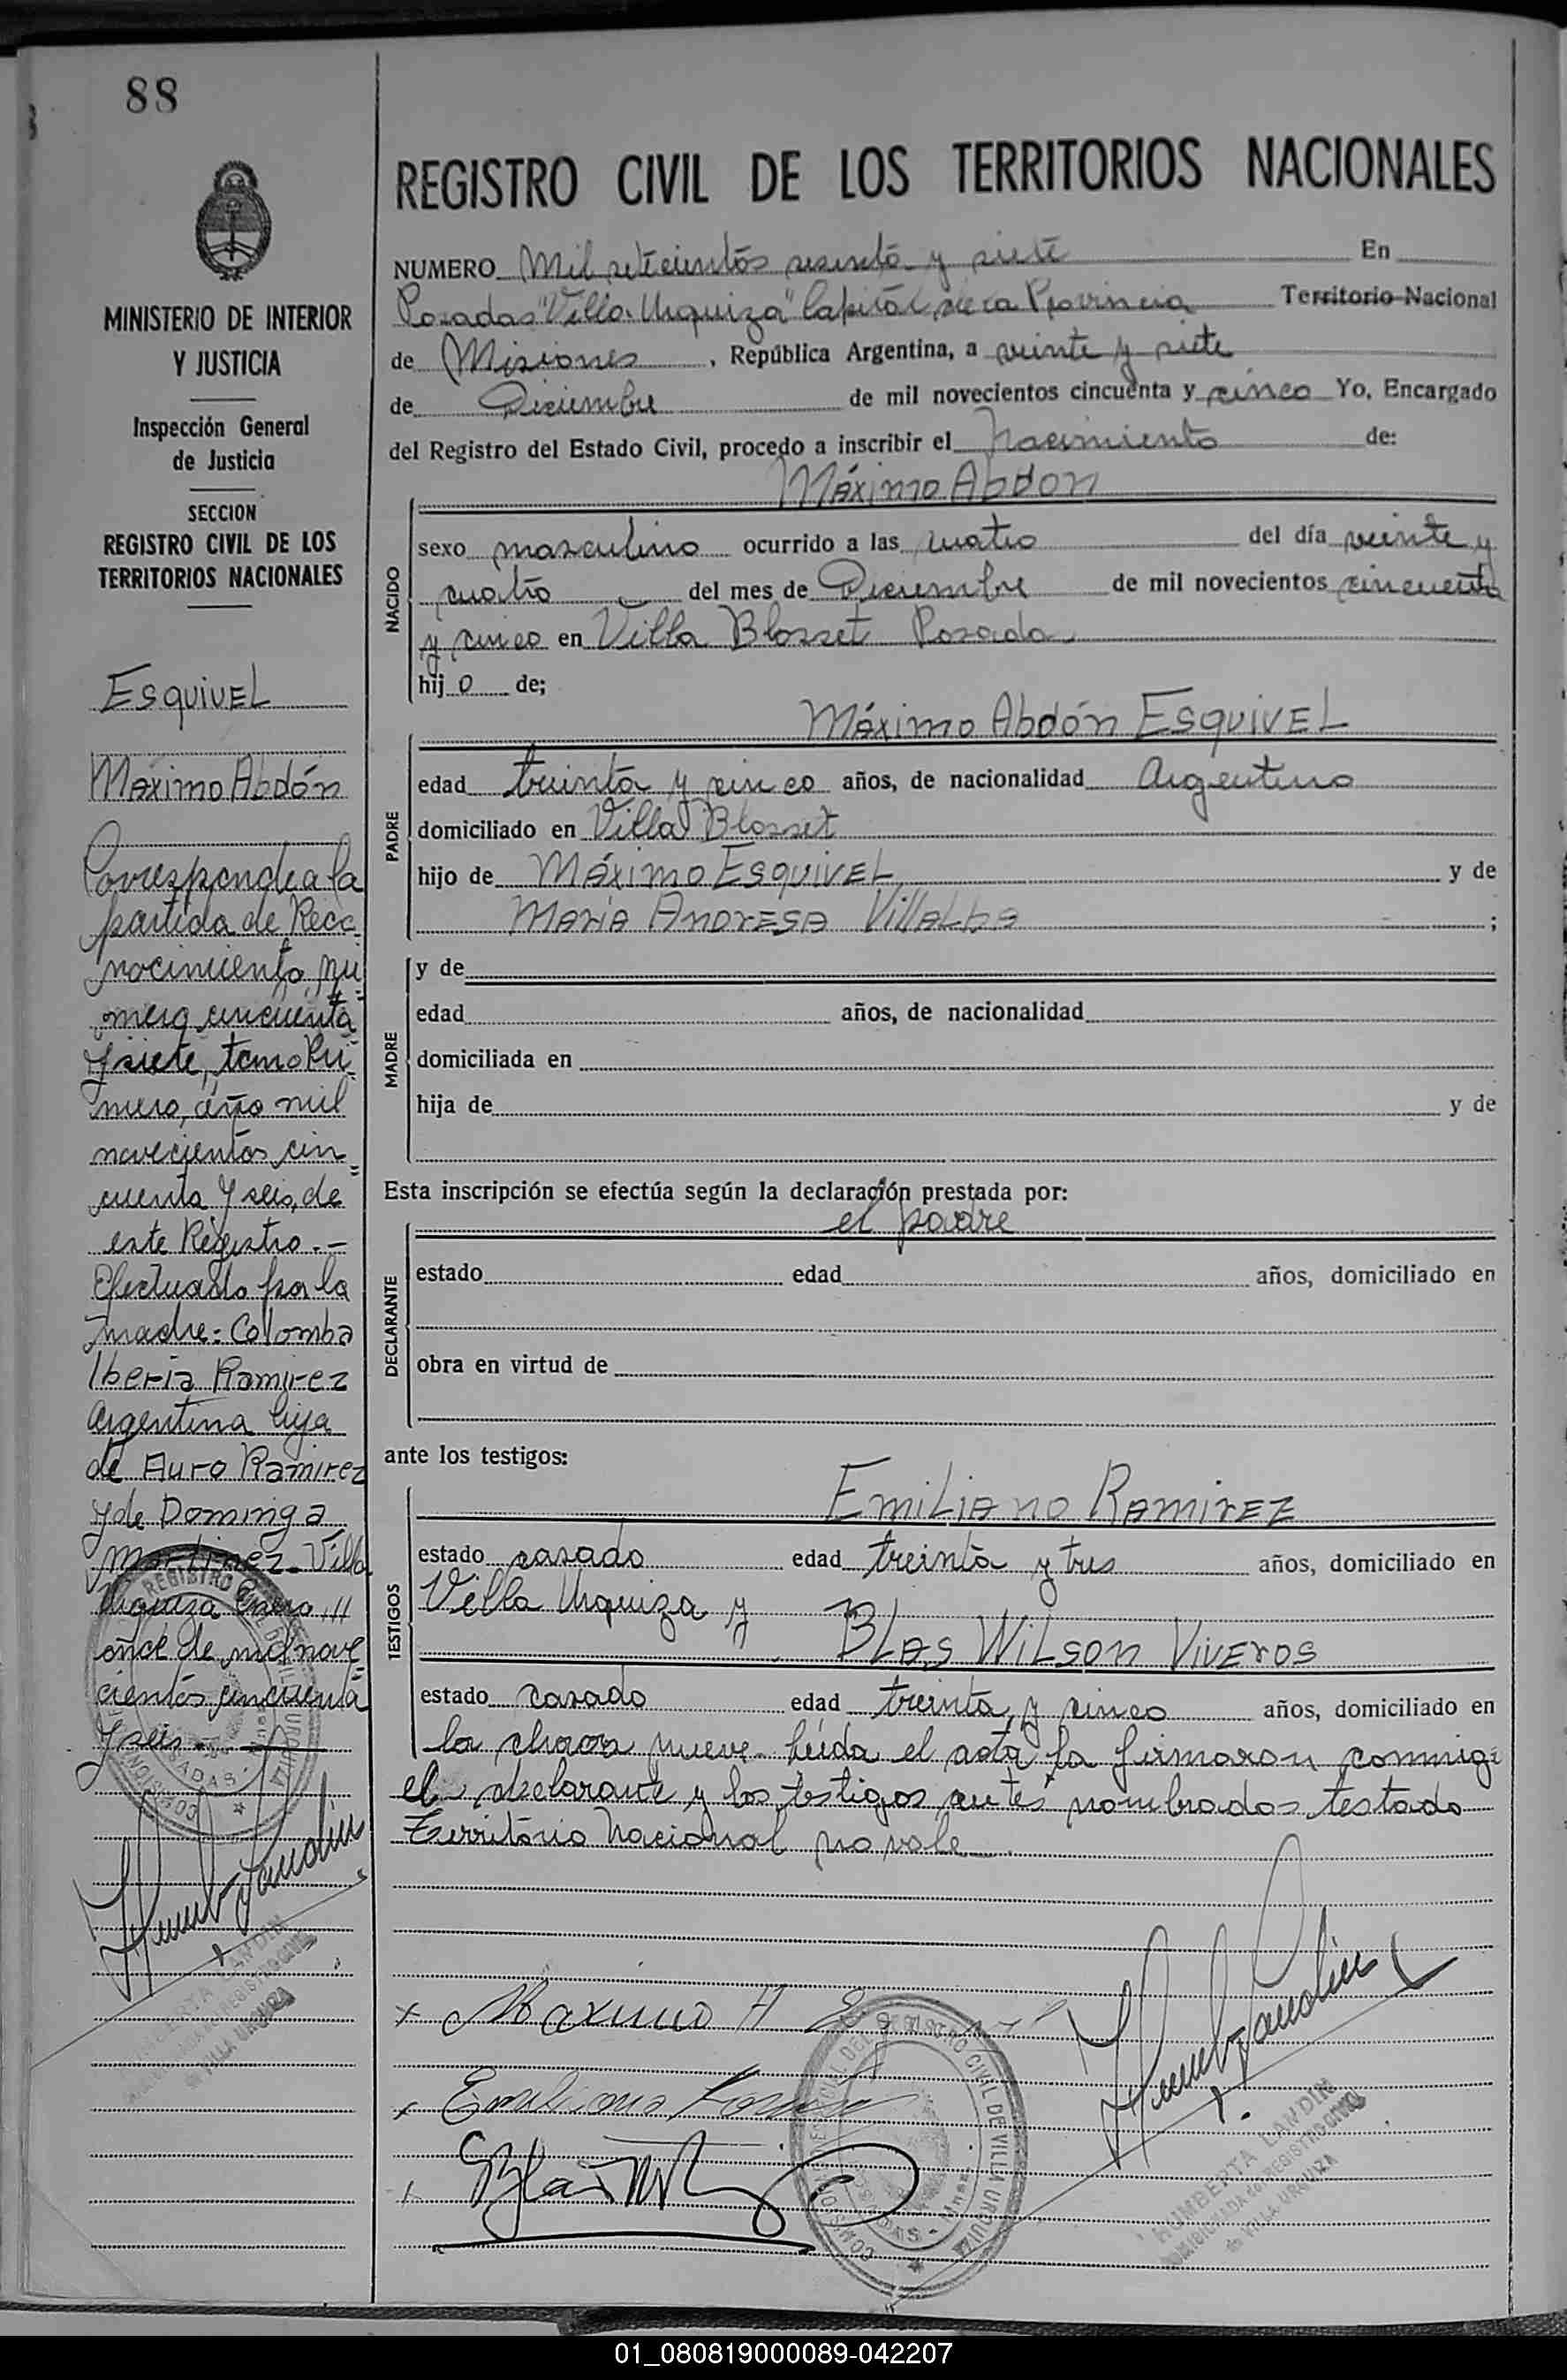 88
MINISTERIO DE INTERIOR
Y JUSTICIA
Inspección General
de Justicia
SECCION
REGISTRO CIVIL DE LOS
TERRITORIOS NACIONALES
Esquivel
Máximo Abdón
Corresponde a la
partida de Reco-
nocimiento nú-
mero cincuenta
y siete, tomo Pri-
mero, año mil
novecientos cin-
cuenta y seis, de
este Registro.-
Efectuado por la
madre: Colomba
Iberia Ramirez
argentina hija
de Auro Ramirez
y de Dominga
Martinez. Villa
Urquiza Enero 11
once de mil nove-
cientos cincuenta
y seis.-
REGISTRO CIVIL DE LOS TERRITORIOS NACIONALES
NUMERO Mil setecientos sesenta y siete En
Posadas "Villa Urquiza" Capital de la Provincia Territorio Nacional
de Misiones, República Argentina, a veinte y siete
de Diciembre de mil novecientos cincuenta y cinco Yo, Encargado
del Registro del Estado Civil, procedo a inscribir el Nacimiento de:
Máximo Abdon
NACIDO
sexo masculino ocurrido a las cuatro del día veinte y
cuatro del mes de Diciembre de mil novecientos cincuenta
y cinco en Villa Blosset Posadas
hijo de;
Máximo Abdón Esquivel
PADRE
edad treinta y cinco años, de nacionalidad Argentino
domiciliado en Villa Blosset
hijo de Máximo Esquivel y de
María Andresa Villalba ;
MADRE
y de
edad años, de nacionalidad
domiciliada en
hija de y de
Esta inscripción se efectúa según la declaración prestada por:
el padre
DECLARANTE
estado edad años, domiciliado en
obra en virtud de
ante los testigos:
Emiliano Ramirez
TESTIGOS
estado casado edad treinta y tres años, domiciliado en
Villa Urquiza y
Blas Wilson Viveros
estado casado edad treinta y cinco años, domiciliado en
la chacra nueve. Leida el acta la firmaron conmigo
el declarante y los testigos antes nombrados testado
Territorio Nacional no vale
Maximo A
Emiliano
HUMBERTA LANDIN
COMISIONADA de REGISTRO CIVIL
de VILLA URQUIZA
01_080819000089-042207